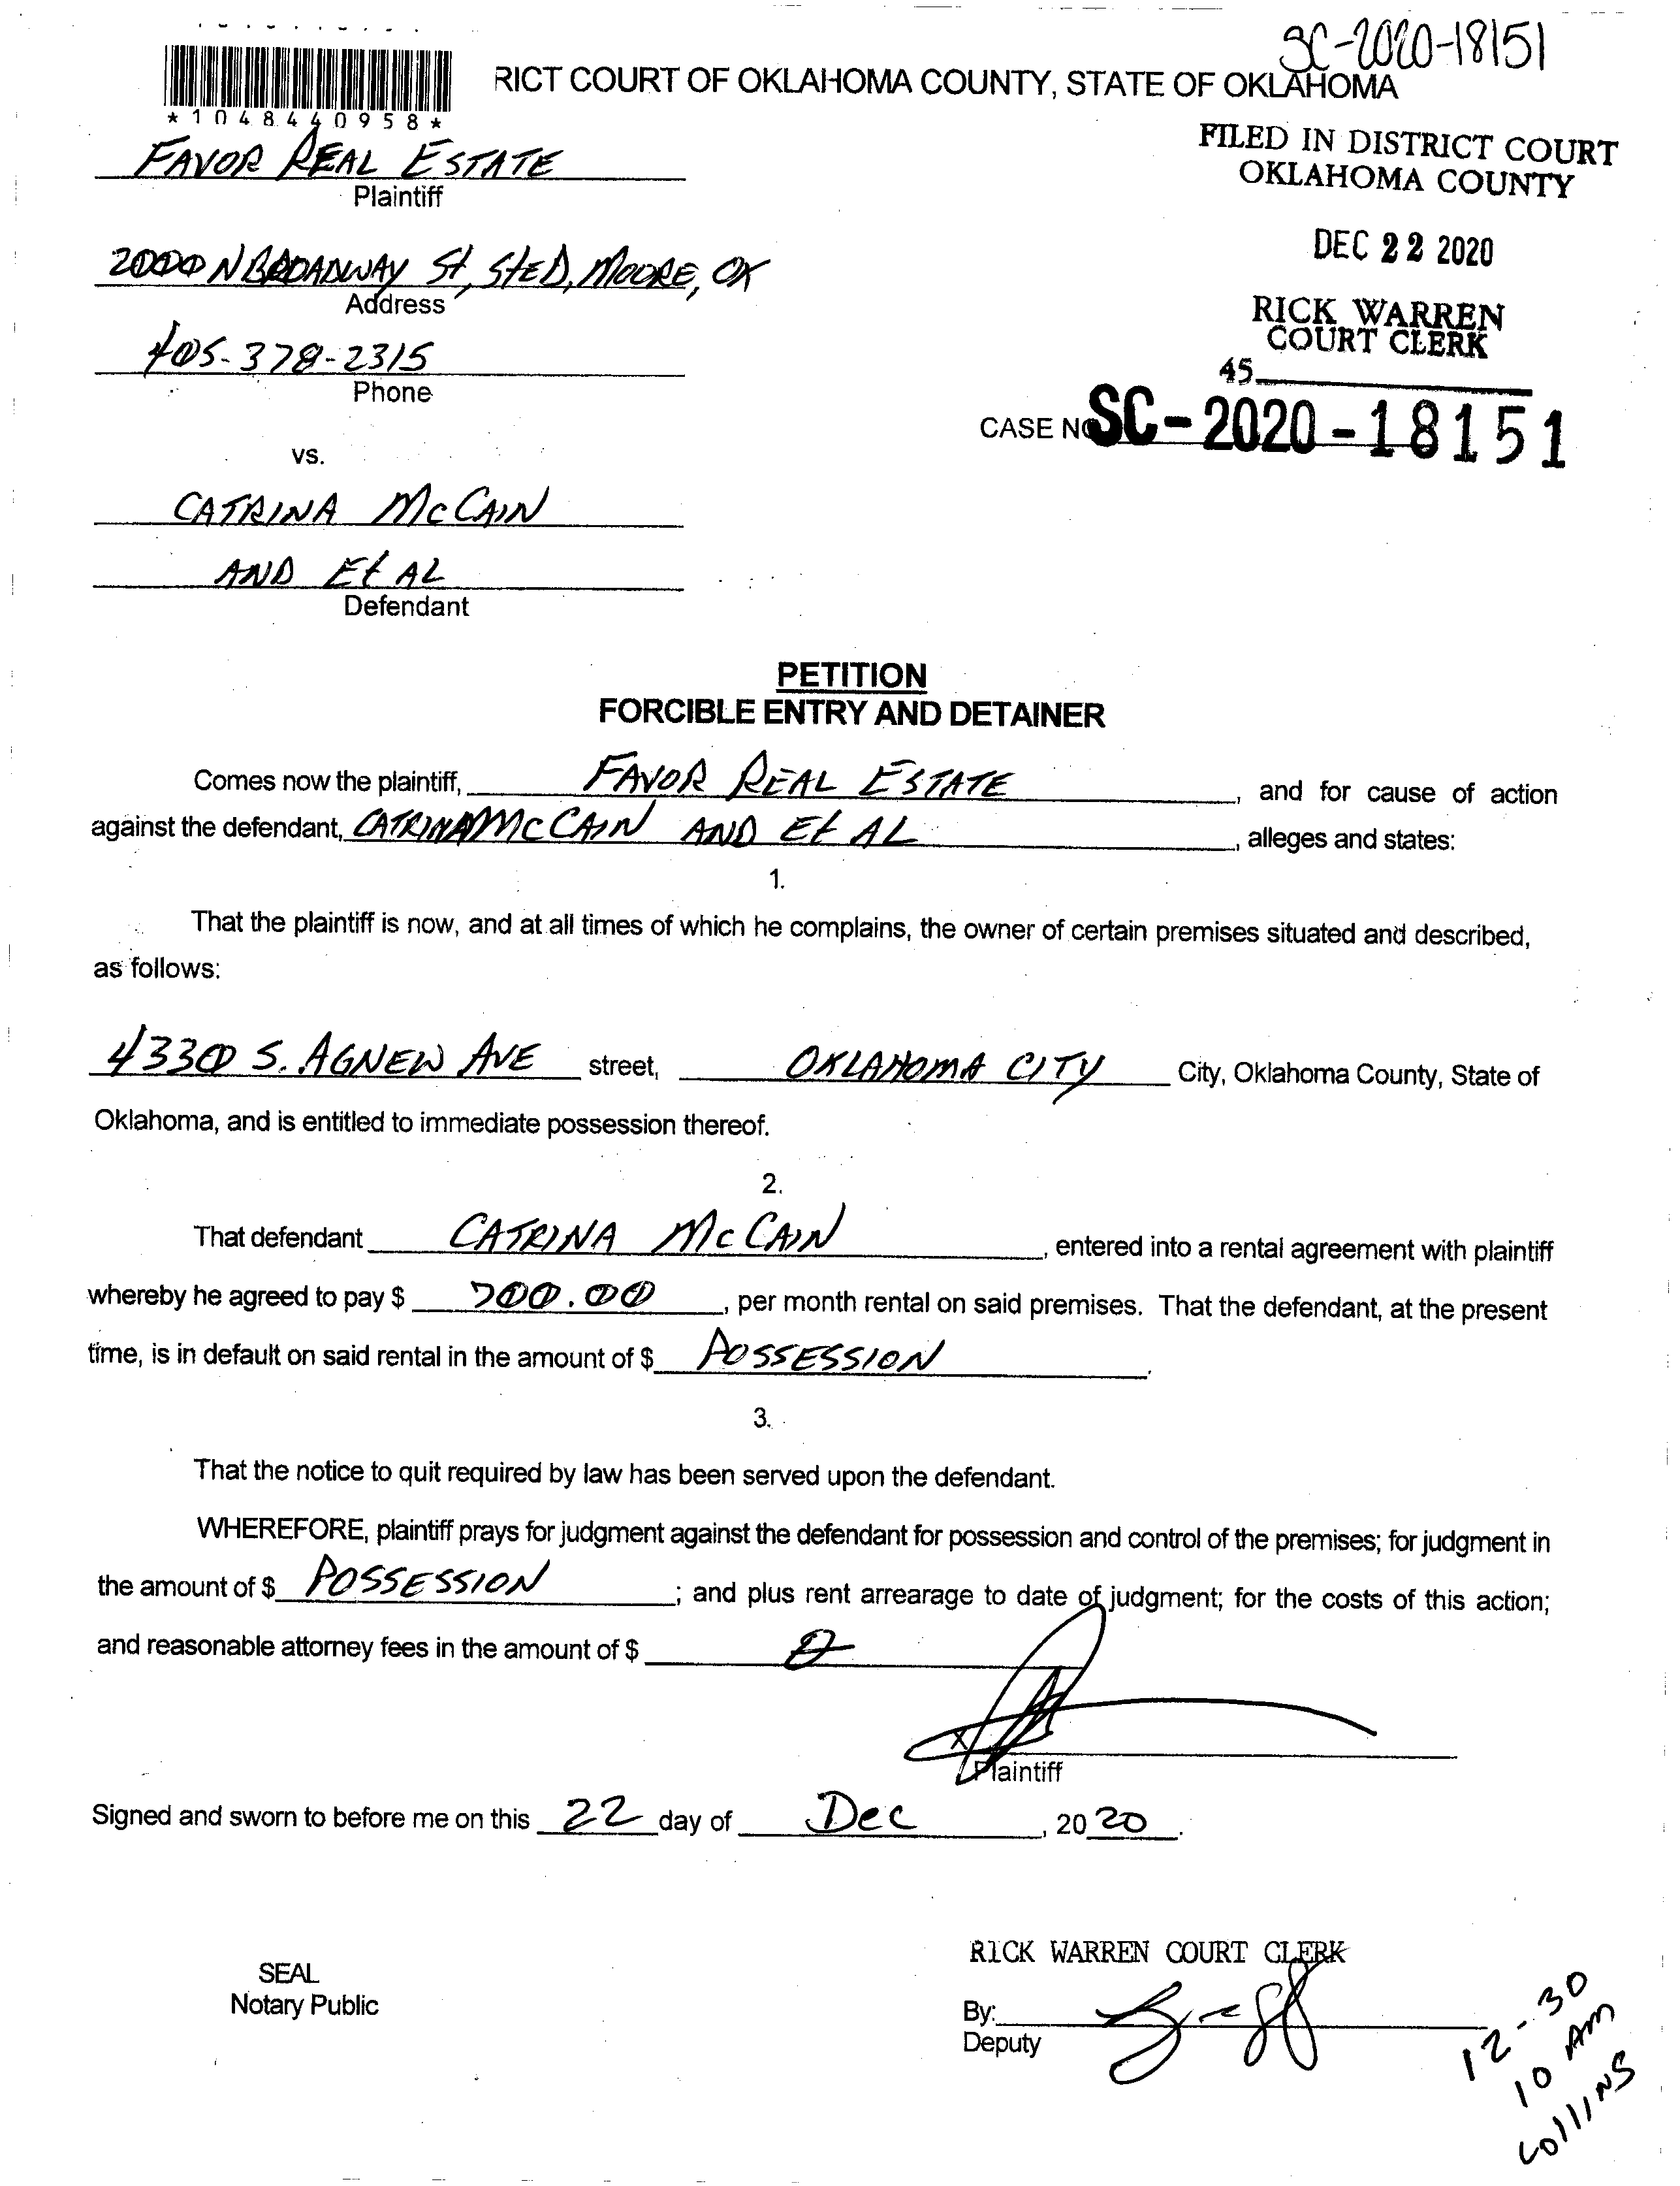 SC-2020-18151
RICT COURT OF OKLAHOMA COUNTY, STATE OF OKLAHOMA
*1048440958*
FILED IN DISTRICT COURT
OKLAHOMA COUNTY
FAVOR REAL ESTATE
Plaintiff
DEC 22 2020
2000 N BROADWAY St, SteD, MOORE, OK
Address
RICK WARREN
COURT CLERK
405-378-2315
Phone
45
CASE NO SC-2020-18151
vs.
CATRINA McCAIN
AND Et AL
Defendant
PETITION
FORCIBLE ENTRY AND DETAINER
Comes now the plaintiff, FAVOR REAL ESTATE, and for cause of action
against the defendant, CATRINA McCAIN AND Et AL, alleges and states:
1.
That the plaintiff is now, and at all times of which he complains, the owner of certain premises situated and described,
as follows:
4330 S. AGNEW AVE street, OKLAHOMA CITY City, Oklahoma County, State of
Oklahoma, and is entitled to immediate possession thereof.
2.
That defendant CATRINA McCAIN, entered into a rental agreement with plaintiff
whereby he agreed to pay $ 700.00, per month rental on said premises. That the defendant, at the present
time, is in default on said rental in the amount of $ POSSESSION.
3.
That the notice to quit required by law has been served upon the defendant.
WHEREFORE, plaintiff prays for judgment against the defendant for possession and control of the premises; for judgment in
the amount of $ POSSESSION; and plus rent arrearage to date of judgment; for the costs of this action;
and reasonable attorney fees in the amount of $
X
Plaintiff
Signed and sworn to before me on this 22 day of Dec, 2020.
RICK WARREN COURT CLERK
SEAL
Notary Public
By:
Deputy
12-30
10 AM
Collins